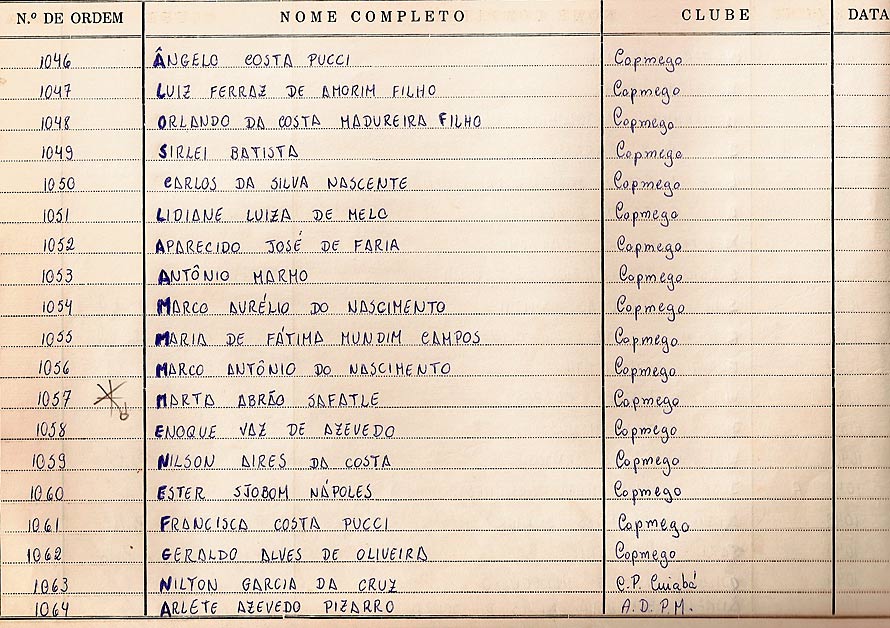 N.º DE ORDEM NOME COMPLETO CLUBE DATA
1046 ÂNGELO COSTA PUCCI Copmego
1047 LUIZ FERRAZ DE AMORIM FILHO Copmego
1048 ORLANDO DA COSTA MADUREIRA FILHO Copmego
1049 SIRLEI BATISTA Copmego
1050 CARLOS DA SILVA NASCENTE Copmego
1051 LIDIANE LUIZA DE MELO Copmego
1052 APARECIDO JOSÉ DE FARIA Copmego
1053 ANTÔNIO MARMO Copmego
1054 MARCO AURÉLIO DO NASCIMENTO Copmego
1055 MARIA DE FÁTIMA MUNDIM CAMPOS Copmego
1056 MARCO ANTÔNIO DO NASCIMENTO Copmego
1057 MARTA ABRÃO SAFATLE Copmego
1058 ENOQUE VAZ DE AZEVEDO Copmego
1059 NILSON AIRES DA COSTA Copmego
1060 ESTER SJOBOM NÁPOLES Copmego
1061 FRANCISCA COSTA PUCCI Copmego
1062 GERALDO ALVES DE OLIVEIRA Copmego
1063 NILTON GARCIA DA CRUZ C.P. Cuiabá
1064 ARLETE AZEVEDO PIZARRO A.D.P.M.